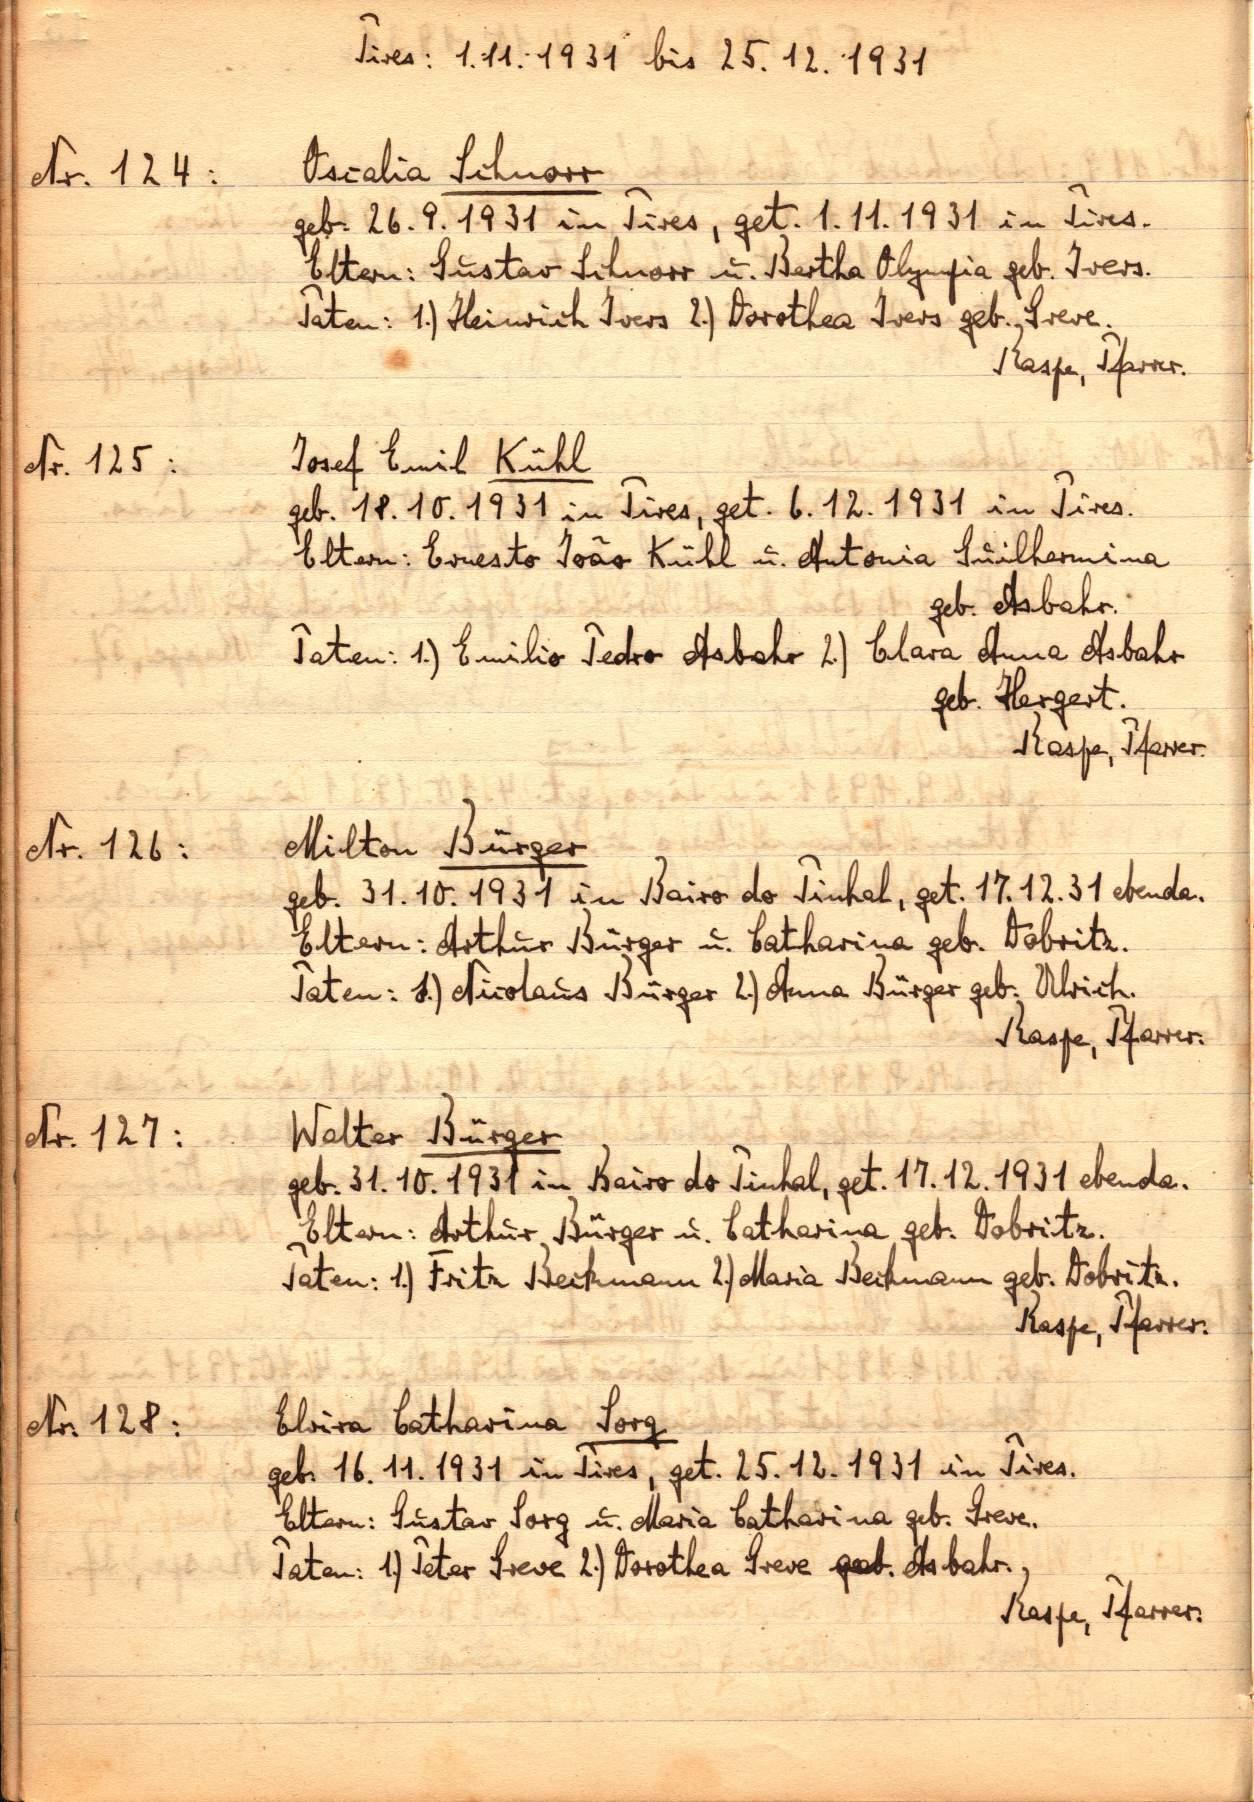 Pires: 1.11.1931 bis 25.12.1931
Nr. 124: Oscalia Schnorr
geb. 26.9.1931 in Pires, get. 1.11.1931 in Pires.
Eltern: Gustav Schnorr u. Bertha Olympia geb. Ivers.
Paten: 1.) Heinrich Ivers 2.) Dorothea Ivers geb. Greve.
Raspe, Pfarrer.
Nr. 125: Josef Emil Kühl
geb. 18.10.1931 in Pires, get. 6.12.1931 in Pires.
Eltern: Ernesto João Kühl u. Antonia Guilhermina
geb. Asbahr.
Paten: 1.) Emilio Pedro Asbahr 2.) Clara Anna Asbahr
geb. Hergert.
Raspe, Pfarrer.
Nr. 126: Milton Bürger
geb. 31.10.1931 in Bairo do Pinhal, get. 17.12.31 ebenda.
Eltern: Arthur Bürger u. Catharina geb. Dobritz.
Paten: 1.) Nicolaus Bürger 2.) Anna Bürger geb. Ulrich.
Raspe, Pfarrer.
Nr. 127: Walter Bürger
geb. 31.10.1931 in Bairo do Pinhal, get. 17.12.1931 ebenda.
Eltern: Arthur Bürger u. Catharina geb. Dobritz.
Paten: 1.) Fritz Beckmann 2.) Maria Beckmann geb. Dobritz.
Raspe, Pfarrer.
Nr. 128: Elvira Catharina Sorg
geb. 16.11.1931 in Pires, get. 25.12.1931 in Pires.
Eltern: Gustav Sorg u. Maria Catharina geb. Greve.
Paten: 1.) Peter Greve 2.) Dorothea Greve geb. Asbahr.,
Raspe, Pfarrer.